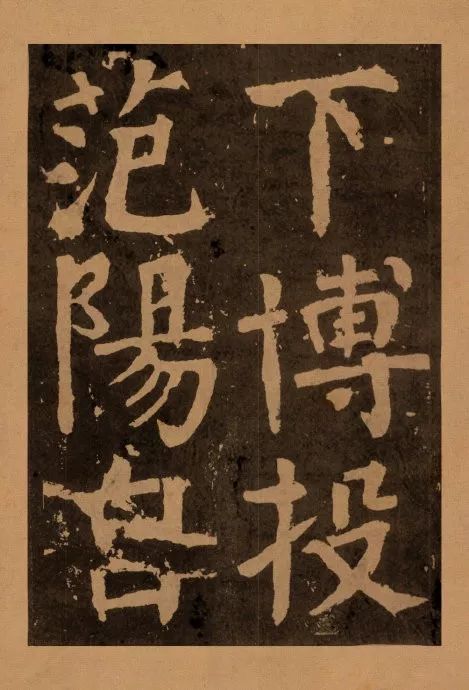 下博投
范陽